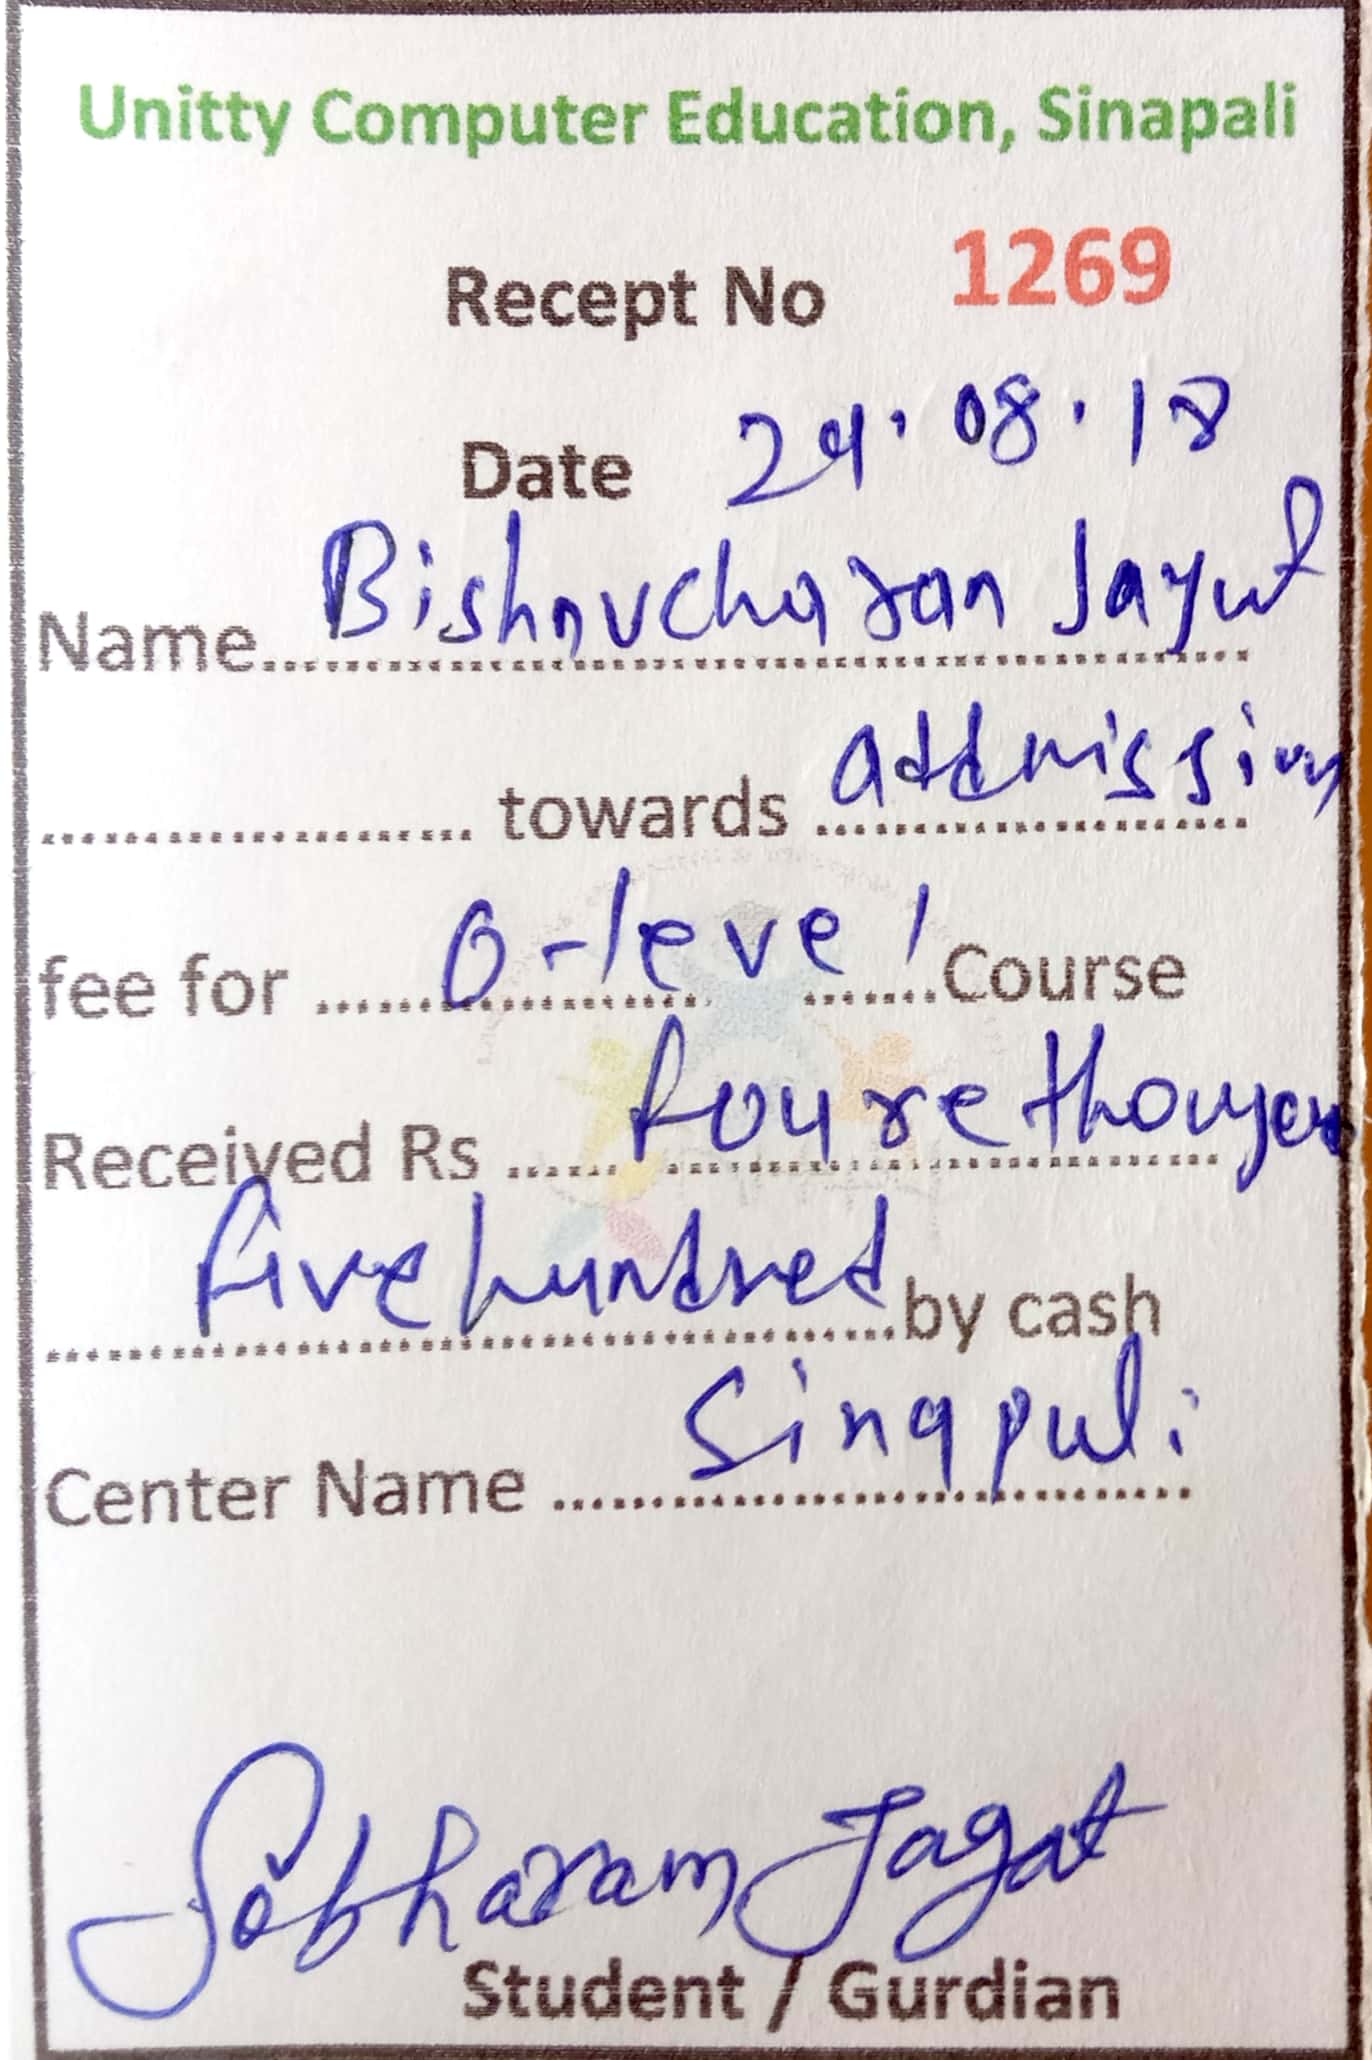 Unitty Computer Education, Sinapali
Recept No 1269
Date 24.08.18
Name Bishnucharan Jagat
towards addmission
fee for O-level Course
Received Rs foure thousen
five hundred by cash
Center Name Sinapali
Sobharam Jagat
Student / Gurdian